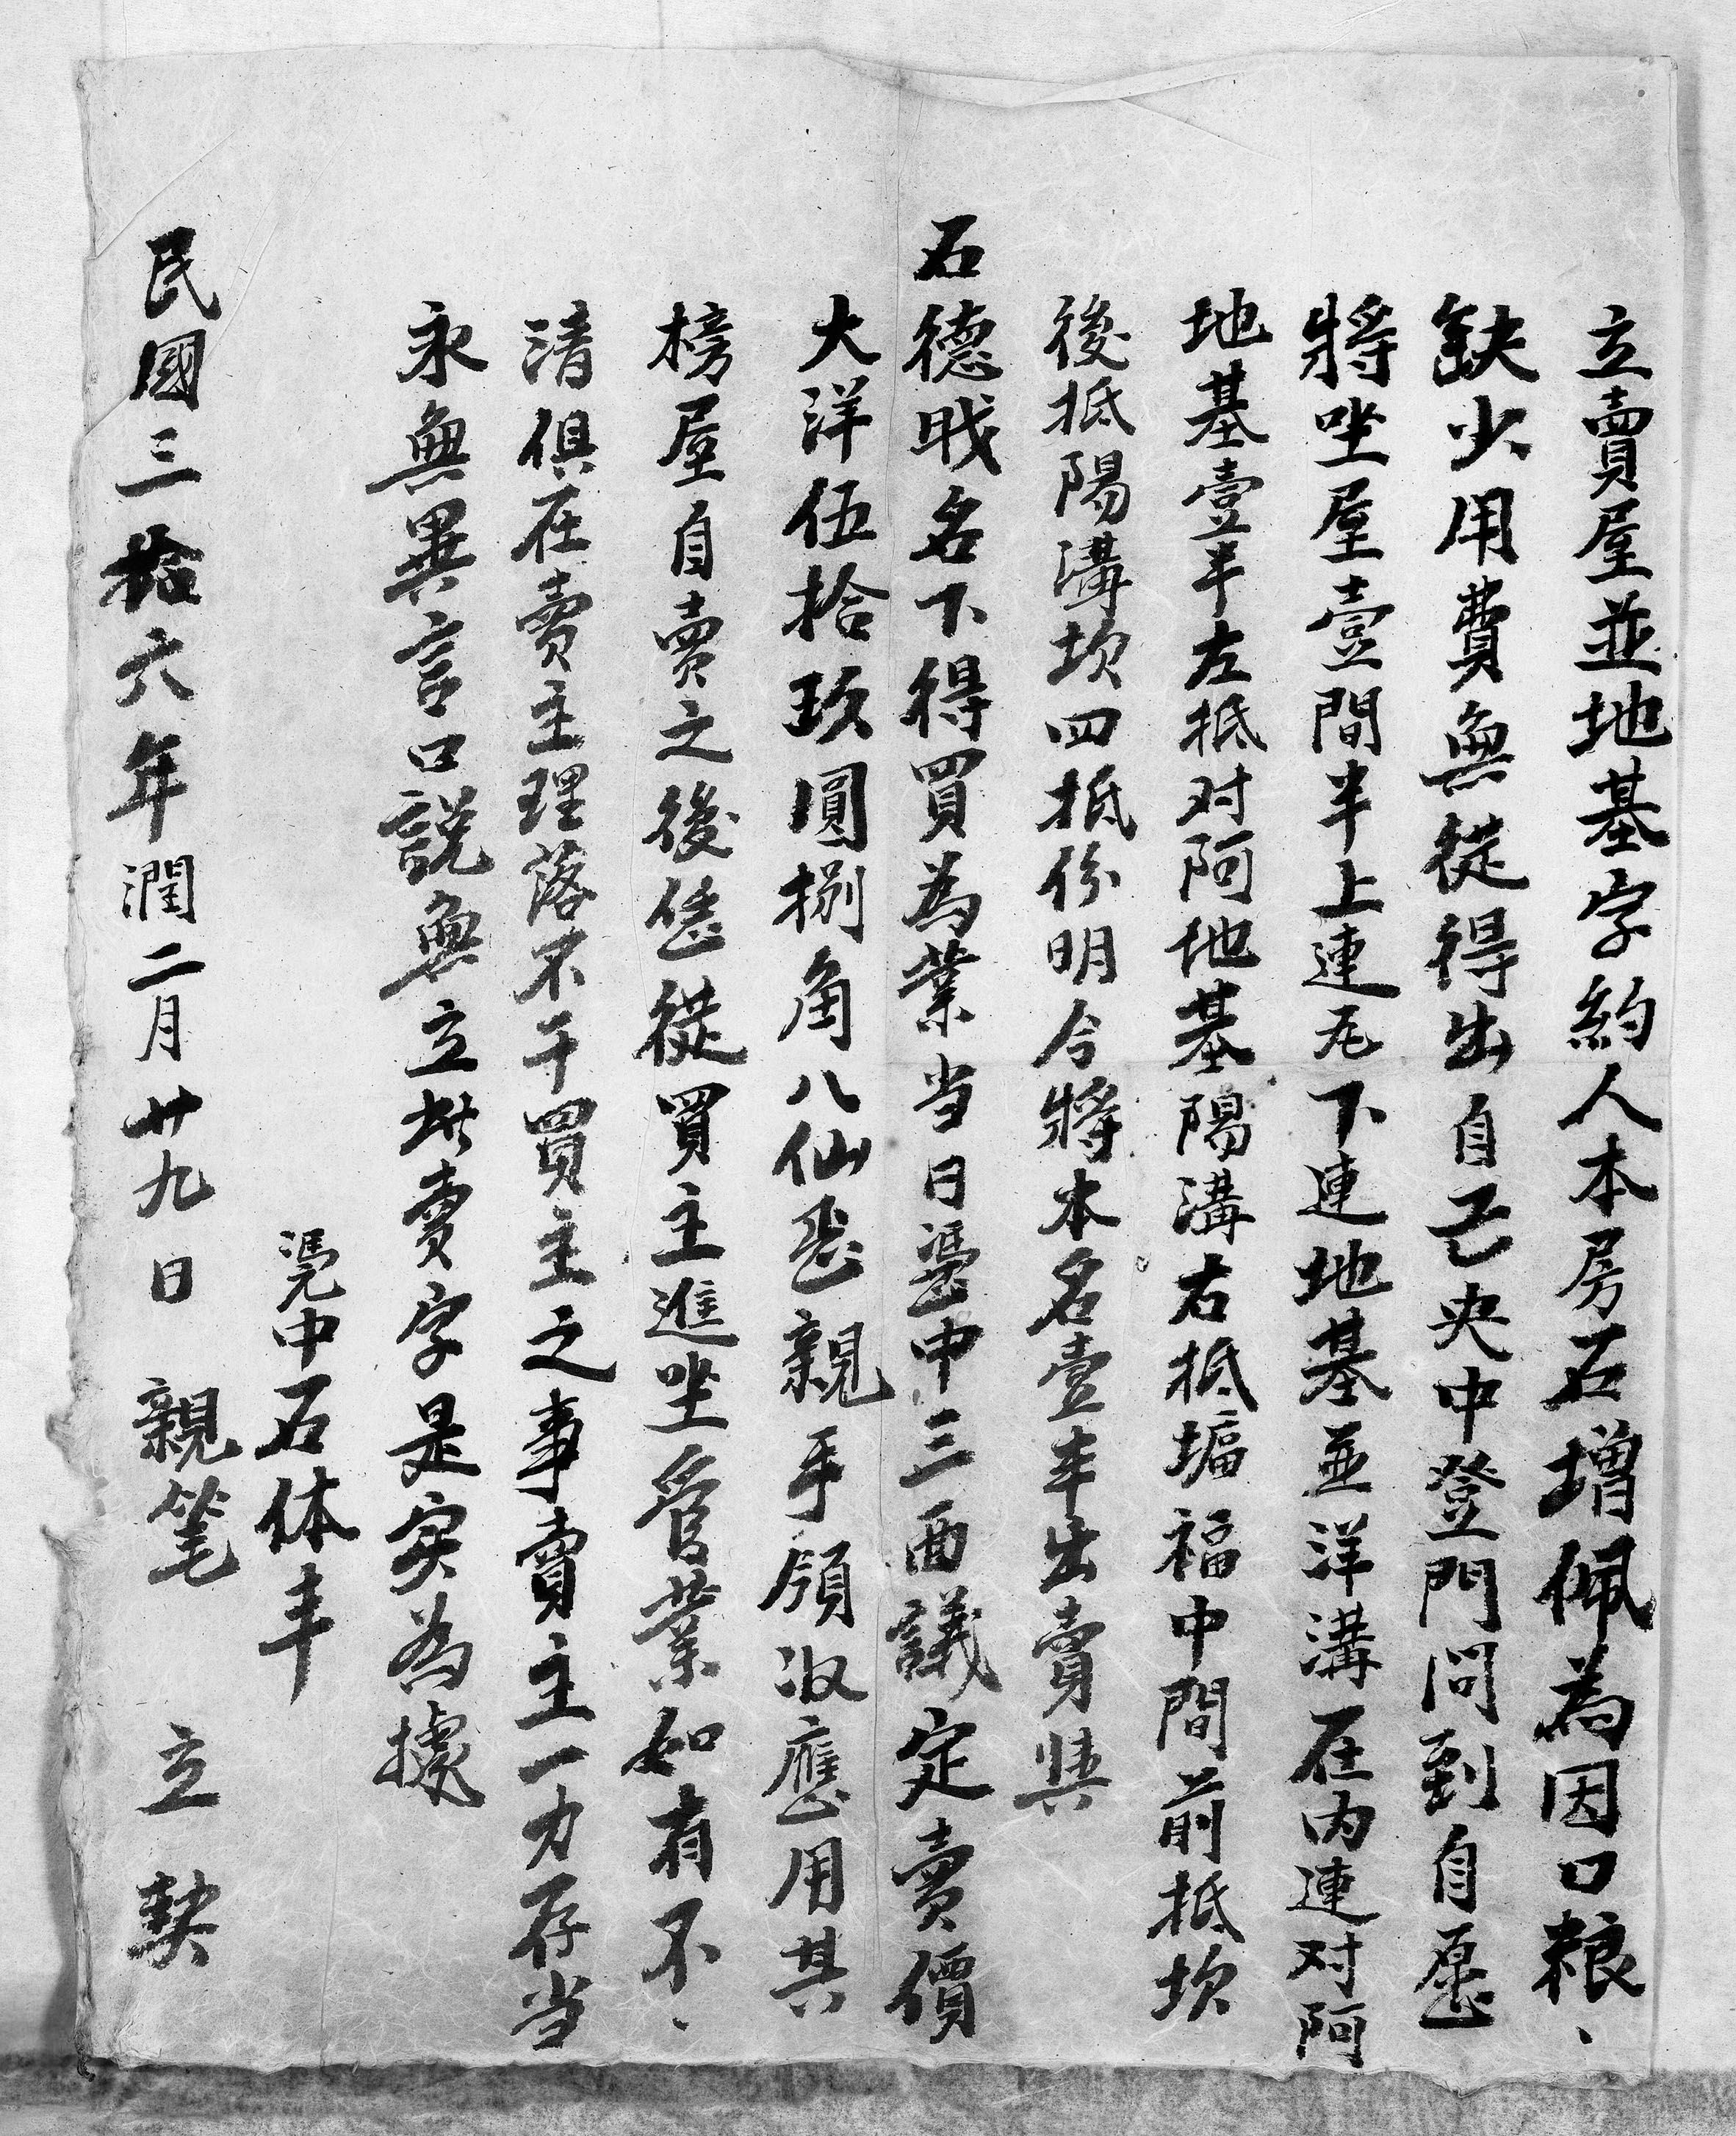 立賣屋並地基字約人本房石增佩為因口粮、
缺少用費無從得出自己央中登門问到自愿
將坐屋壹間半上連瓦下連地基並洋溝在内連对阿
地基壹半左抵对阿地基陽溝右抵塥福中間前抵坎
後抵陽溝坎四抵份明今將本名壹半出賣與
石德戝名下得買為業当日憑中三面議定賣價
大洋伍拾玖圓捌角八仙恁親手領汊應用其
榜屋自賣之後恁從買主進坐管業如有不、
清俱在賣主理落不干買主之事賣主一力存当
永無異言口説無立此賣字是实為據
憑中石体丰
民國三拾六年潤二月廿九日 親笔 立契